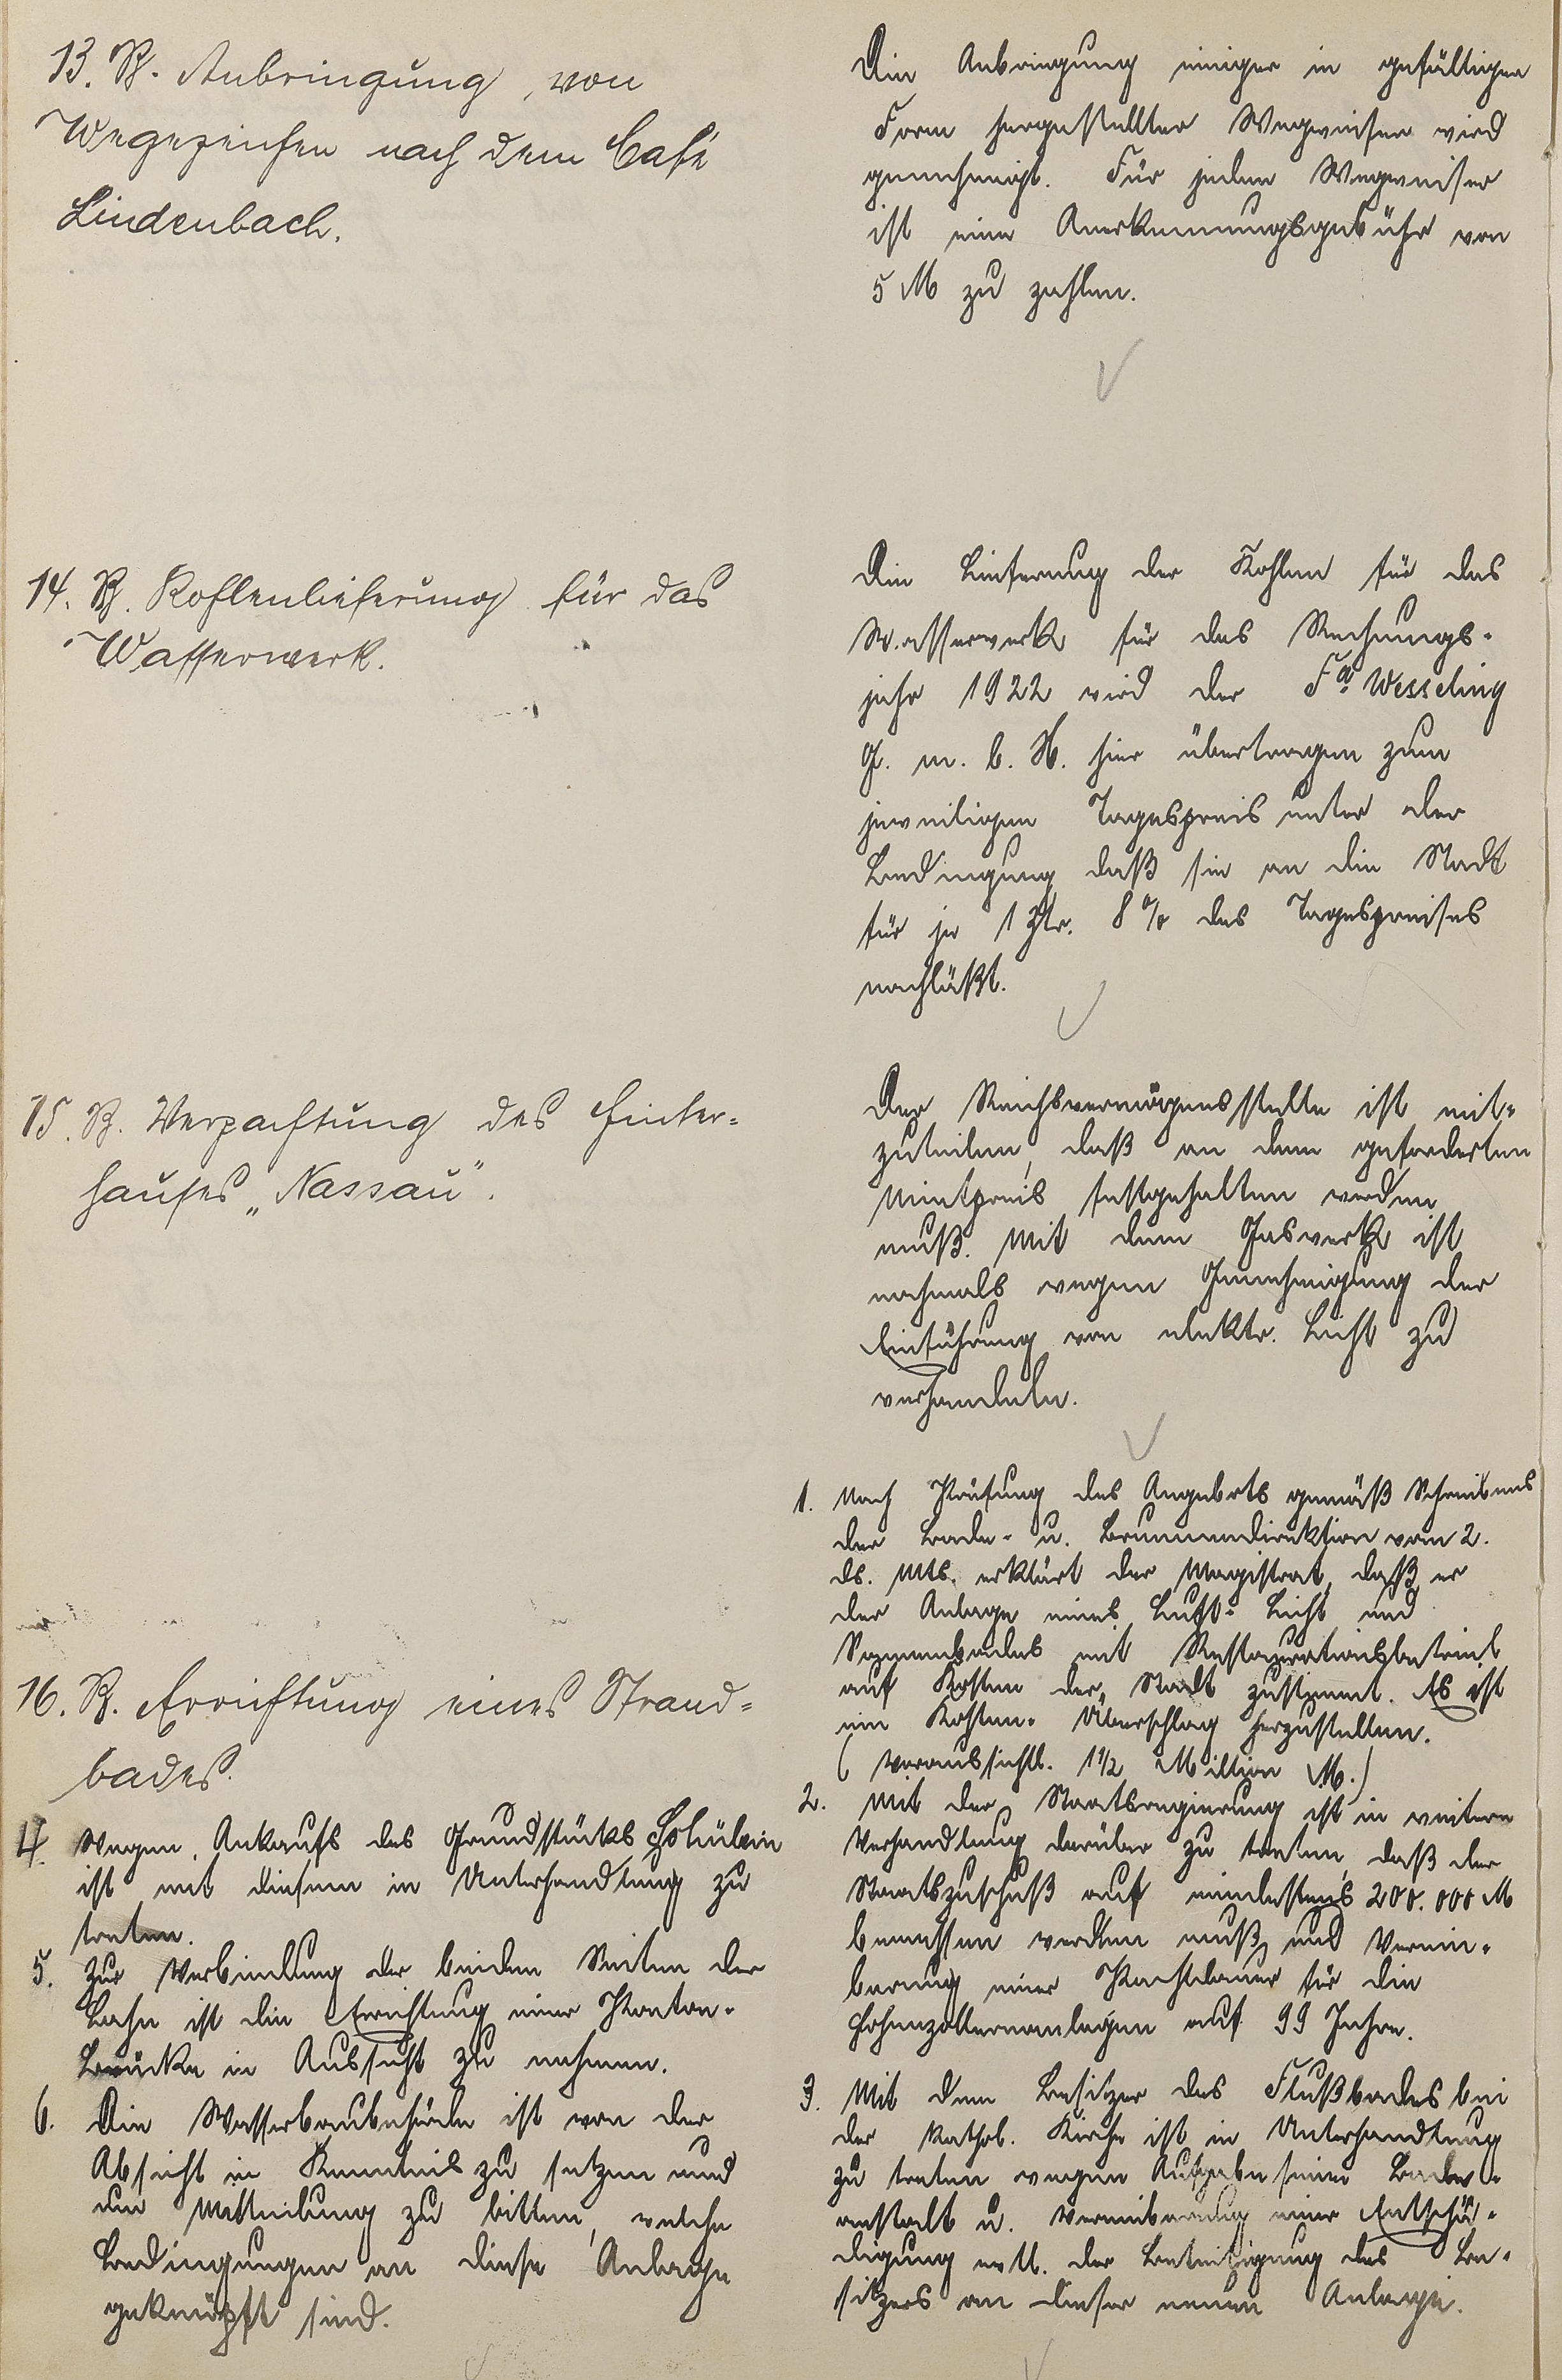 13. B. Anbringung von
Wegezeichen nach dem Café
Lindenbach.
Die Anbringung einiger in gefälliger
Form hergestellter Wegweiser wird
genehmigt. Für jeden Wegweiser
ist eine Anerkennungsgebühr von
5 M zu zahlen.
14. B. Kohlenlieferung für das
Wasserwerk.
Die Lieferung der Kohlen für das
Wasserwerk für das Rechnungs-
jahr 1922 wird der Fa. Wesseling
G. m. b. H. hier übertragen zum
jeweiligen Tagespreis unter der
Bedingung daß sie an die Stadt
für je 1 Ztr. 8% des Tagespreises
nachläßt.
15. B. Verpachtung des Hinter-
hauses „Nassau".
Der Reichsvermögensstelle ist mit-
zuteilen, daß an dem geforderten
Mietpreis festgehalten werden
muß. Mit dem Gaswerk ist
nochmals wegen Genehmigung der
Einführung von elektr. Licht zu
verhandeln.
16. B. Errichtung eines Strand-
bades.
1. Nach Prüfung des Angebots gemäß Schreibens
der Bade- u. Brunnendirektion vom 2.
ds. Mts. erklärt der Magistrat, daß er
der Anlage eines Luft- Licht und
Sonnenbades mit Restaurationsbetrieb
auf Kosten der Stadt zustimmt. Es ist
ein Kosten-Überschlag herzustellen.
(voraussichtl. 1 1/2 Million M.)
2. Mit der Staatsregierung ist in weitere
Verhandlung darüber zu treten, daß der
Staatszuschuß auf mindestens 200.000 M
bemessen werden muß und Verein-
barung einer Pachtdauer für die
Hohenzollernanlagen auf 99 Jahre.
3. Mit dem Besitzer des Flußbades bei
der kathol. Kirche ist in Unterhandlung
zu treten wegen Aufgabe seiner Bade-
anstalt u. Vereinbarung einer Entschä-
digung evtl. der Beteiligung des Be-
sitzers an dieser neuen Anlage.
4. Wegen Ankaufs des Grundstücks Schülein
ist mit diesem in Unterhandlung zu
treten.
5. Zur Verbindung der beiden Seiten der
Lahn ist die Errichtung einer Ponton-
Brücke in Aussicht zu nehmen.
6. Die Wasserbaubehörde ist von der
Absicht in Kenntnis zu setzen und
um Mitteilung zu bitten, welche
Bedingungen an diese Anlage
geknüpft sind.